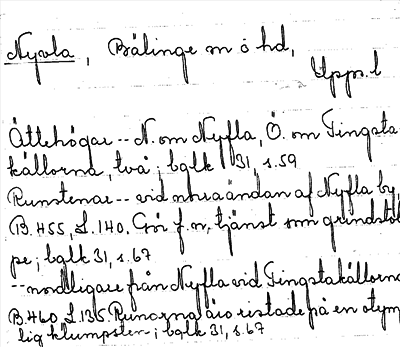 Nyvla, Bälinge sn o hd,
Uppl.
Ättehögar -- N. om Nyfla, Ö. om Tingsta-
källorna, två; bglk 31, s.59
Runstenar -- vid norra ändan af Nyfla by
B.455, L.140. Gör f.n. tjänst som grindstol
pe; bglk 31, s.67
-- nordligare från Nyfla vid Tingstakällorna
B.460, L.135. Runorna äro ristade på en otymp
lig klumpsten; bglk 31, s.67